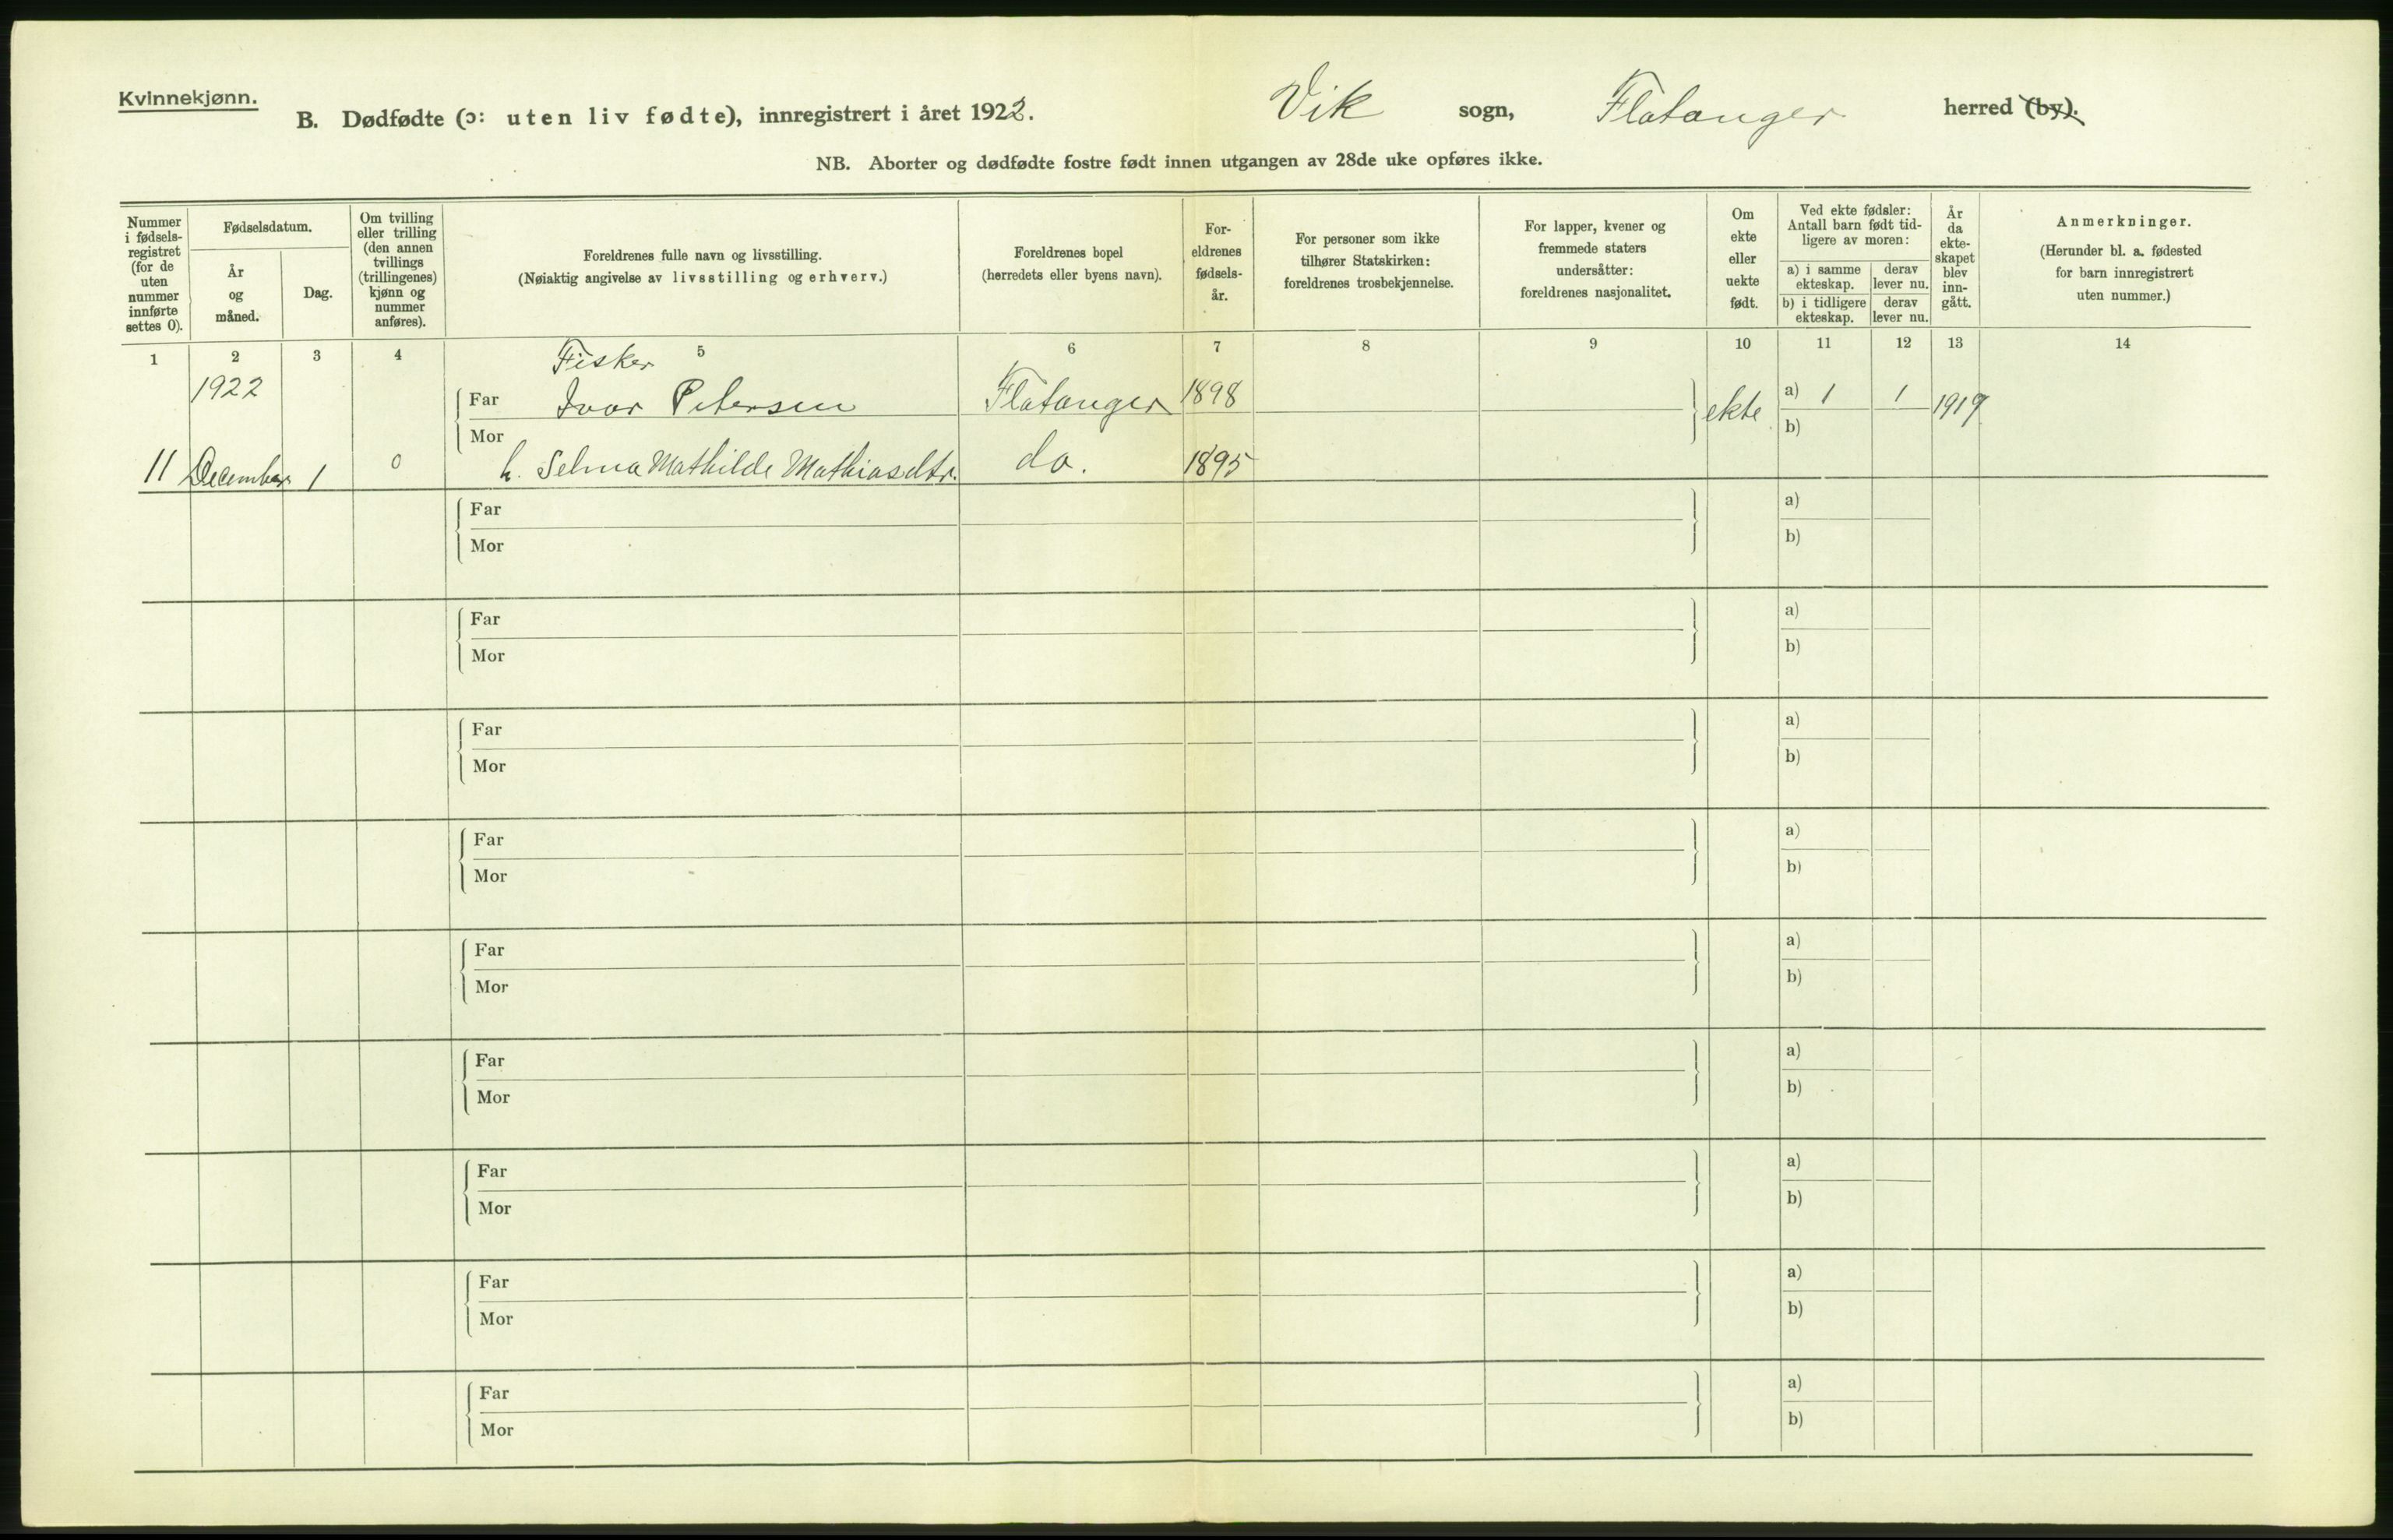 Kvinnekjønn.
B. Dødfødte (ɔ: uten liv fødte), innregistrert i året 1922. Vik sogn, Flatanger herred (by).
NB. Aborter og dødfødte fostre født innen utgangen av 28de uke opføres ikke.
Nummer
i fødsels-
registret
(for de
uten
nummer
innførte
settes 0).
Fødselsdatum.
År
og
måned.
Dag.
Om tvilling
eller trilling
(den annen
tvillings
(trillingenes)
kjønn og
nummer
anføres).
Foreldrenes fulle navn og livsstilling.
(Nøiaktig angivelse av livsstilling og erhverv.)
Foreldrenes bopel
(herredets eller byens navn).
For-
eldrenes
fødsels-
år.
For personer som ikke
tilhører Statskirken:
foreldrenes trosbekjennelse.
For lapper, kvener og
fremmede staters
undersåtter:
foreldrenes nasjonalitet.
Om
ekte
eller
uekte
født.
Ved ekte fødsler:
Antall barn født tid-
ligere av moren:
a) i samme
ekteskap.
derav
lever nu.
b) i tidligere
ekteskap.
derav
lever nu.
År
da
ekte-
skapet
blev
inn-
gått.
Anmerkninger.
(Herunder bl. a. fødested
for barn innregistrert
uten nummer.)
1 2 3 4 5 6 7 8 9 10 11 12 13 14
Fisker
1922 Far Ivar Petersen Flatanger 1898 ekte a) 1 1 1919
Mor b)
11 December 1 0 h. Selma Mathilde Mathiasdtr. do. 1895
Far a)
Mor b)
Far a)
Mor b)
Far a)
Mor b)
Far a)
Mor b)
Far a)
Mor b)
Far a)
Mor b)
Far a)
Mor b)
Far a)
Mor b)
Far a)
Mor b)